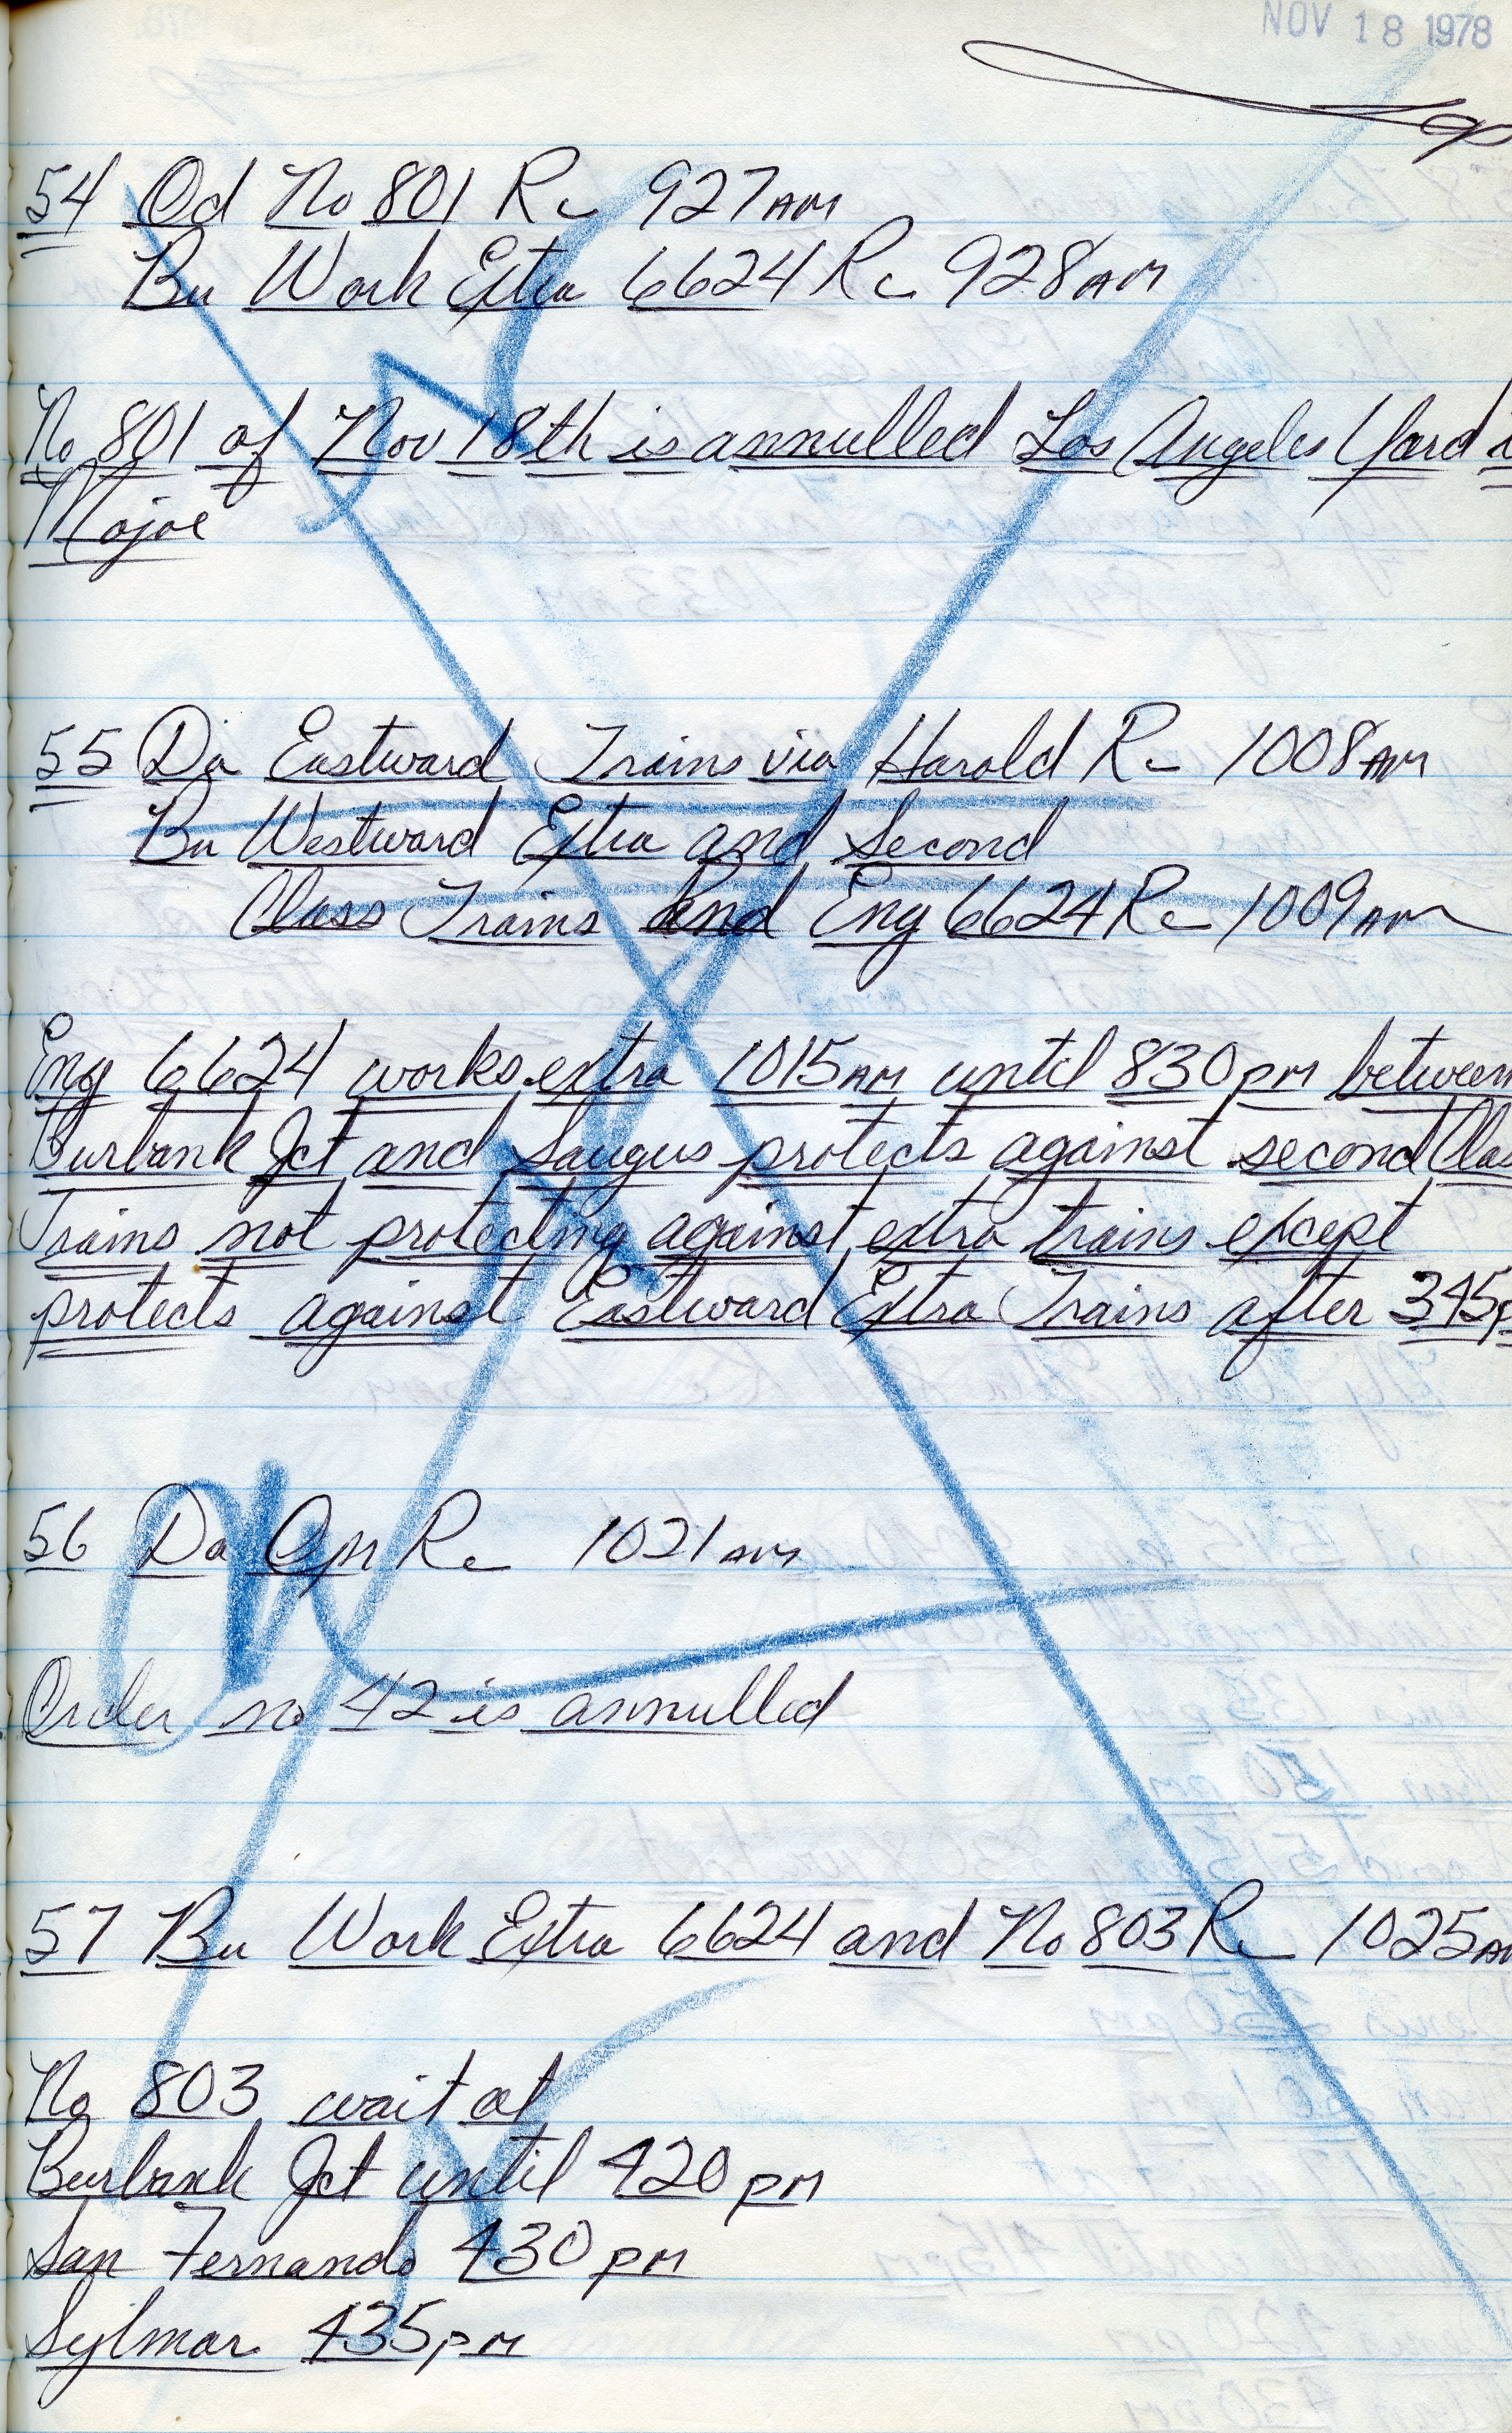 NOV 18 1978
54 Od No 801 Rc 927AM
Bu Work Extra 6624 Rc 928AM
No 801 of Nov 18th is annulled Los Angeles Yard
Mojve
55 Da Eastward Trains via Harold Rc 1008AM
Bu Westward Extra and Second
Class Trains and Eng 6624 Rc 1009AM
Eng 6624 works extra 1015AM until 830PM between
Burbank Jct and Saugus protects against second Clas
Trains not protecting against extra trains except
protects against Eastward Extra Trains after 345P
56 Da Opr Rc 1021AM
Order no 42 is annulled
57 Bu Work Extra 6624 and No 803 Rc 1025AM
No 803 wait at
Burbank Jct until 420PM
San Fernando 430PM
Sylmar 435PM